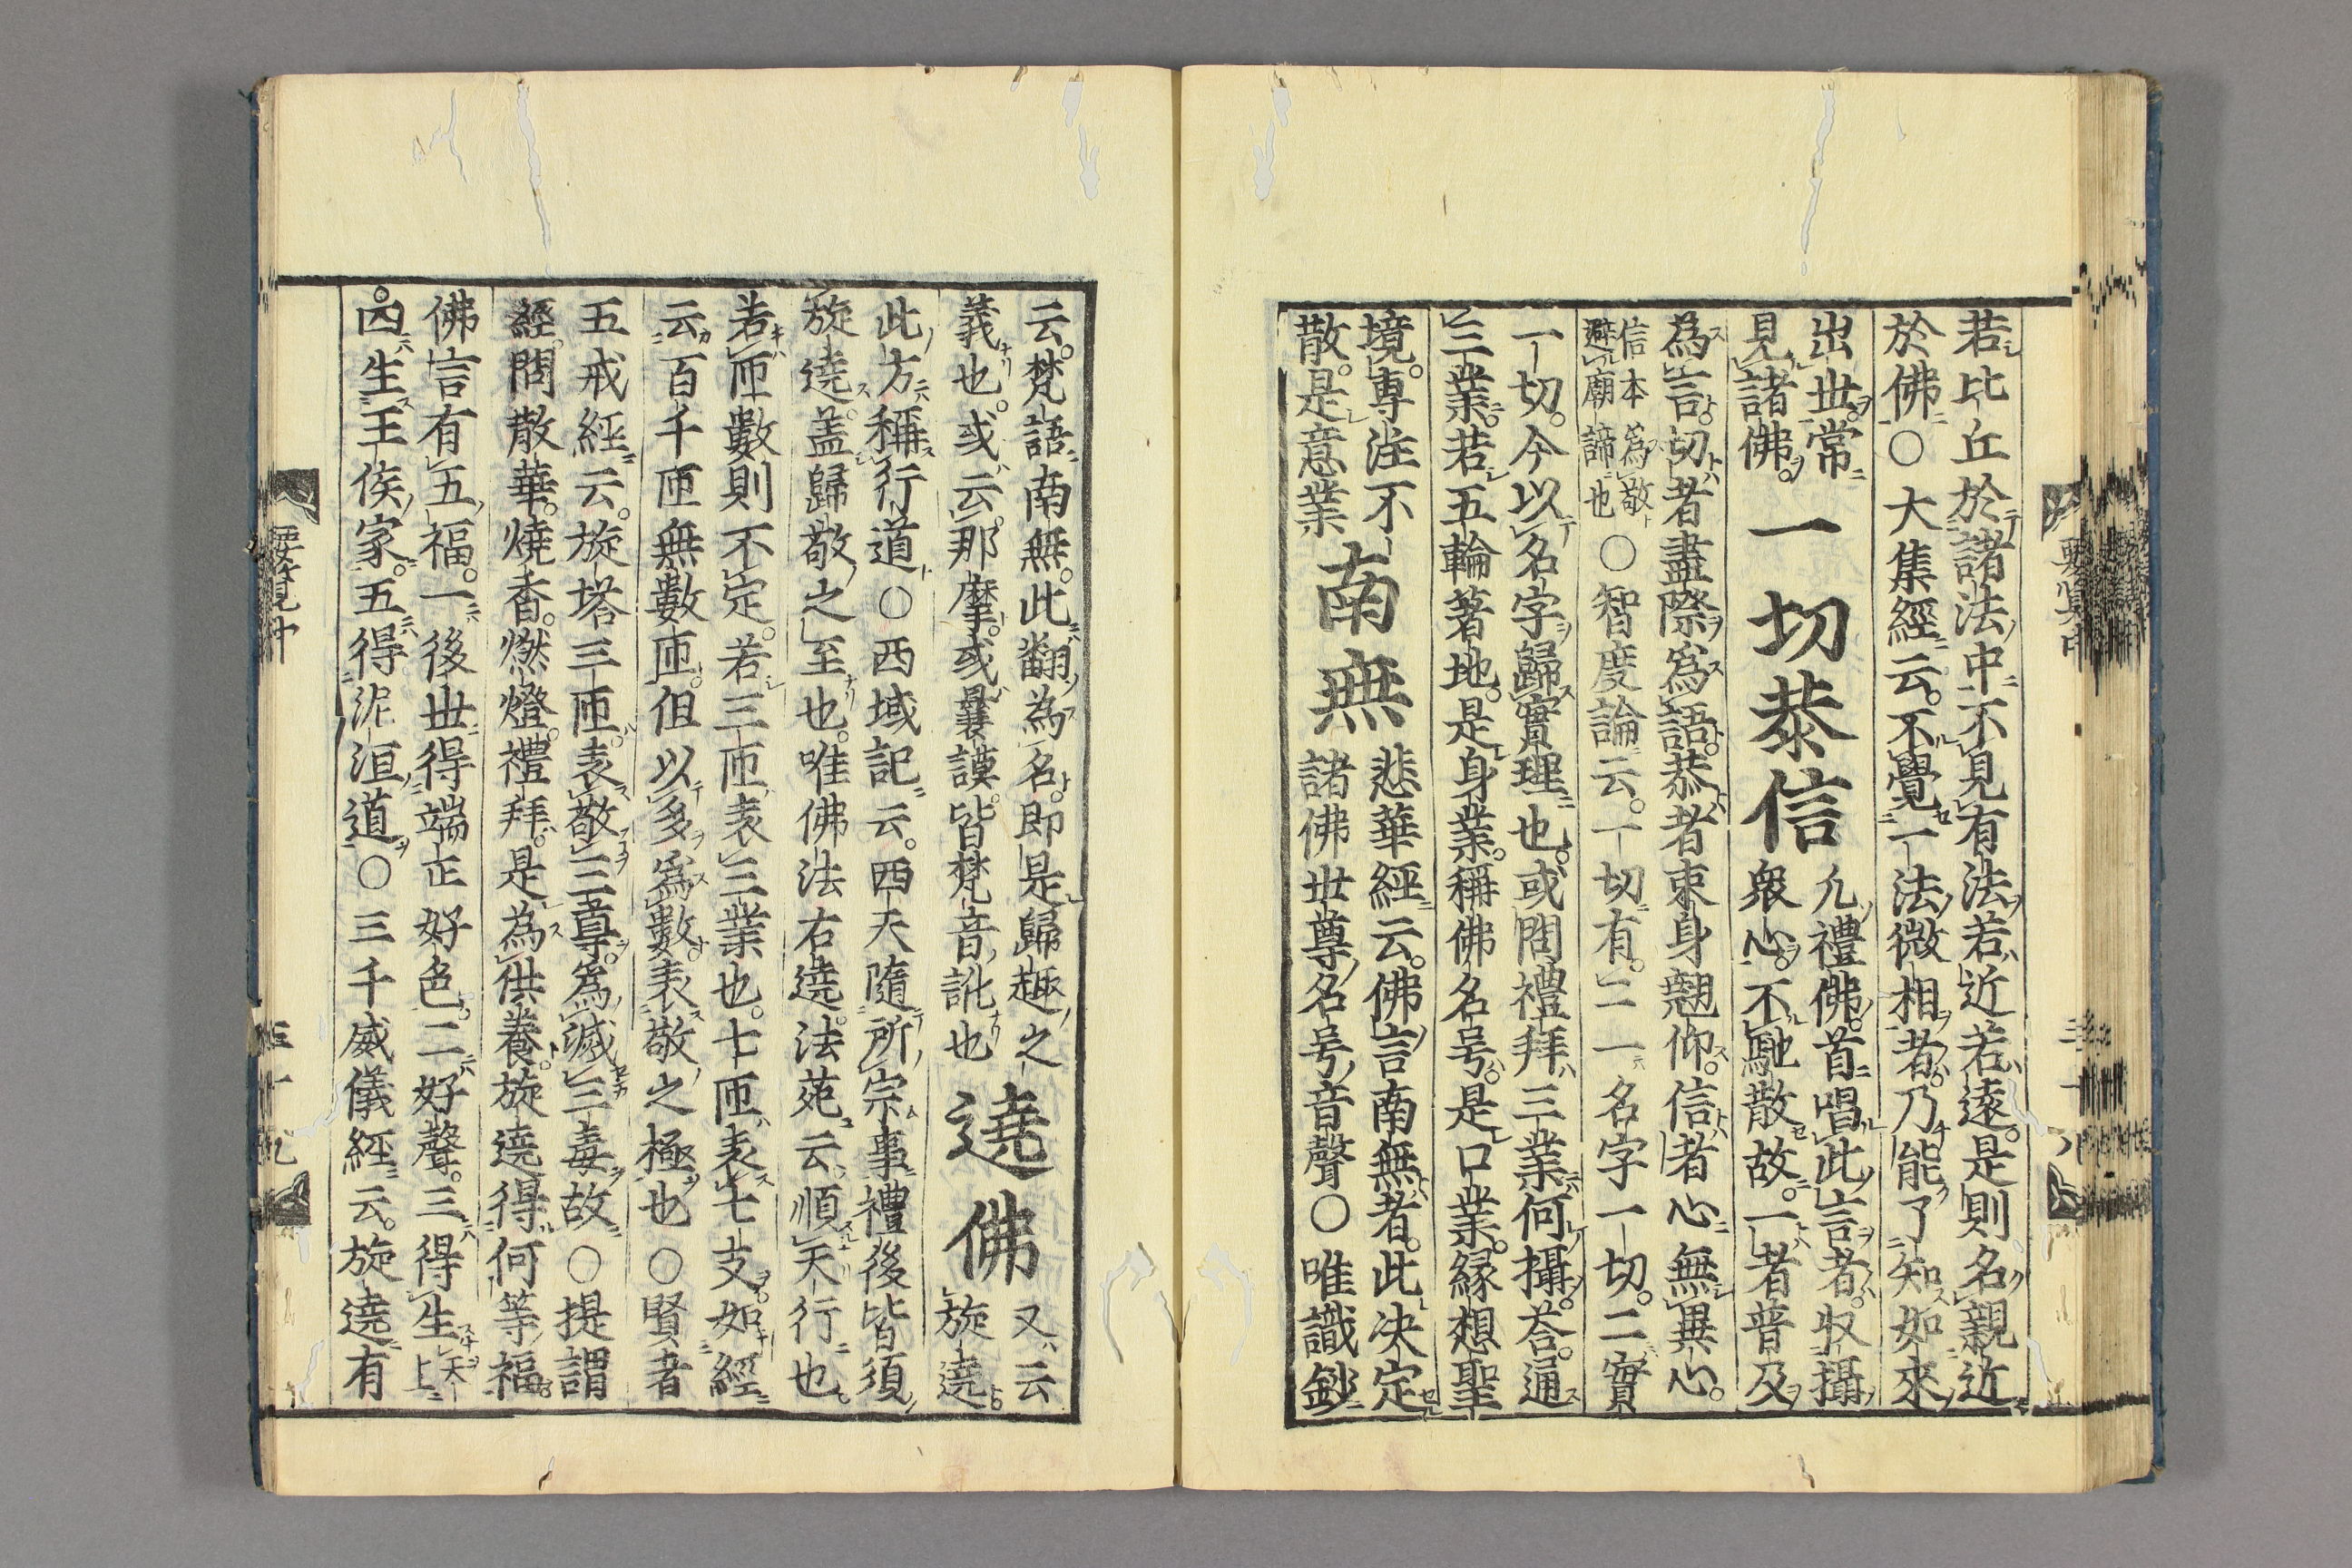 若比丘於諸法中不見有法若近若遠是則名親近
於佛○大集經云不覺一法微相者乃能了知如來
出世常見諸佛
一切恭信
凡禮佛首唱此言者収攝
衆心不馳散故一者普及
為言切者盡際為語恭者束身翹仰信者心無異心
信本為敬
避廟諦也
○智度論云一切有二一名字一切二實
一切今以名字歸實理也或問禮拜三業何攝荅通
三業若五輪著地是身業稱佛名号是口業縁想聖
境專注不
散是意業
南無
悲華經云佛言南無者此决定
諸佛世尊名号音聲○唯識鈔
云梵語南無此翻為名即是歸趣之
義也或云那摩或曩謨皆梵音訛也
遶佛
又云
旋遶
此方稱行道○西域記云西天隨所宗事禮後皆須
旋遶盖歸敬之至也唯佛法右遶法苑云順天行也
若匝數則不定若三匝表三業也七匝表七支如經
云百千匝無數匝但以多為數表敬之極也○賢者
五戒經云旋塔三匝表敬三尊為滅三毒故○提謂
經問散華燒香燃燈禮拜是為供養旋遶得何等福
佛言有五福一後世得端正好色二好聲三得生天上
四生王侯家五得泥洹道○三千威儀經云旋遶有
要覧中
三十九